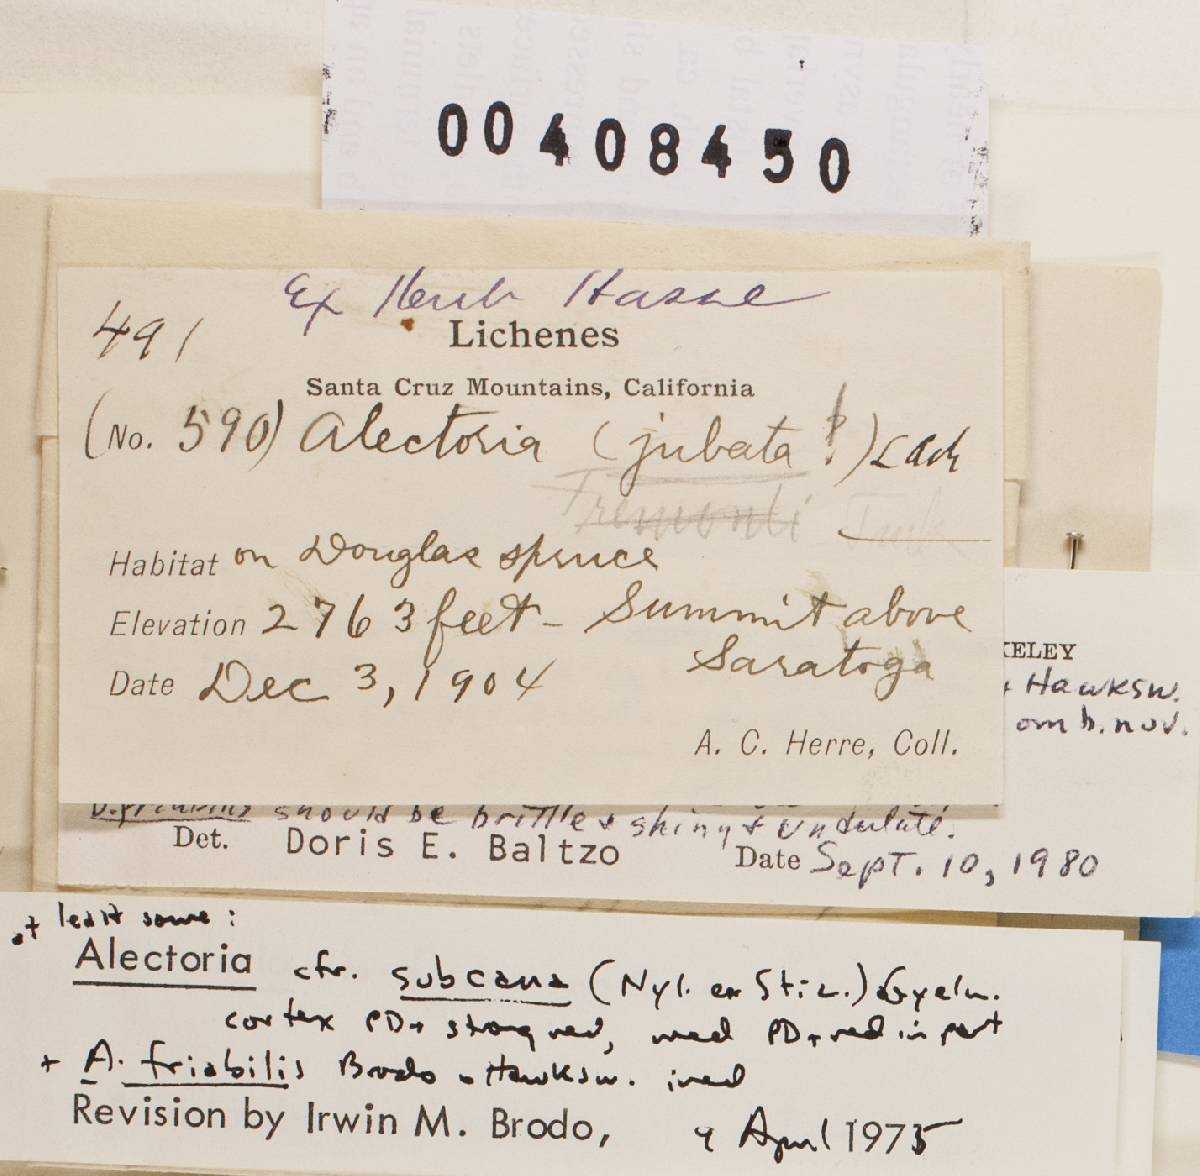 00408450
Ex Herb Hasse
491
Lichenes
Santa Cruz Mountains, California
(No. 590) Alectoria (jubata !) L Ach
Fremonti Tuck
Habitat on Douglas spruce
Elevation 2763 feet - Summit above
Saratoga
Date Dec 3, 1904
A. C. Herre, Coll.
KELEY
Hawksw.
omb. nov.
should be brittle & shiny & undulate.
Det. Doris E. Baltzo Date Sept. 10, 1980
at least some:
Alectoria cfr. subcana (Nyl. ex Stiz.) Gyeln.
cortex PD+ strong red, med PD+ red in part
+ A. friabilis Brodo & Hawksw. ined
Revision by Irwin M. Brodo, 9 April 1975